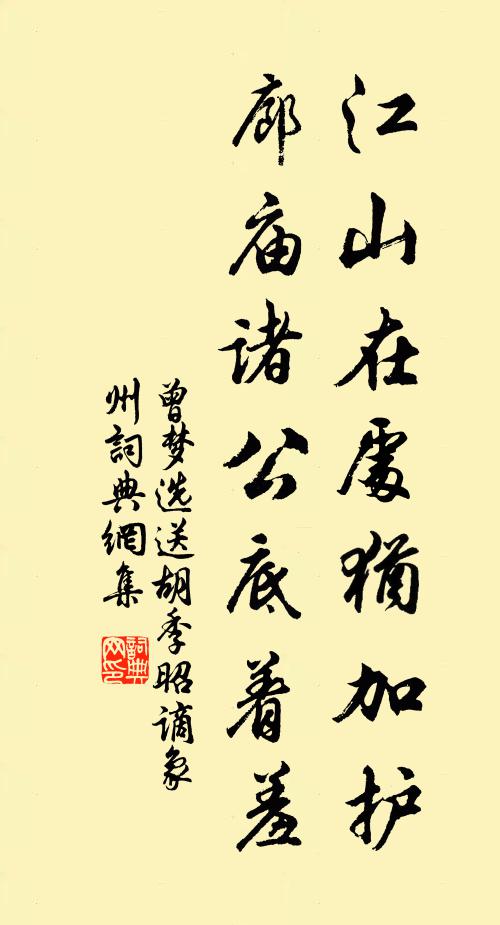 江山在處猶加护
廊庙诸公底着羞
曾梦选送胡季昭谪象
州詞典網集
詞典
网印